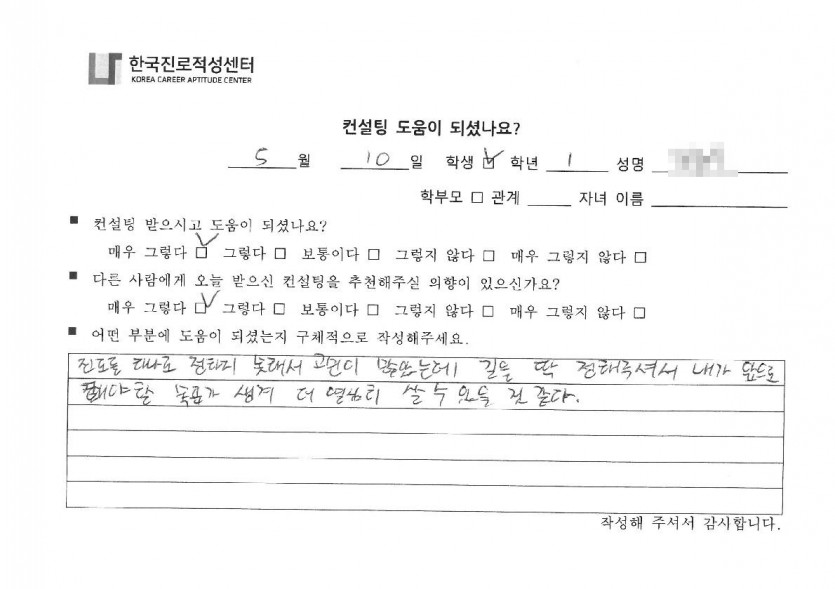 한국진로적성센터
KOREA CAREER APTITUDE CENTER
컨설팅 도움이 되셨나요?
5 월 10 일 학생 ☑ 학년 1 성명
학부모 □ 관계 자녀 이름
■ 컨설팅 받으시고 도움이 되셨나요?
매우 그렇다 ☑ 그렇다 □ 보통이다 □ 그렇지 않다 □ 매우 그렇지 않다 □
■ 다른 사람에게 오늘 받으신 컨설팅을 추천해주실 의향이 있으신가요?
매우 그렇다 ☑ 그렇다 □ 보통이다 □ 그렇지 않다 □ 매우 그렇지 않다 □
■ 어떤 부분에 도움이 되셨는지 구체적으로 작성해주세요.
진로를 정하지 못해서 고민이 많았는데 길을 딱 정해주셔서 내가 앞으로
해야 할 목표가 생겨 더 열심히 살 수 있을 것 같다.
작성해 주셔서 감사합니다.